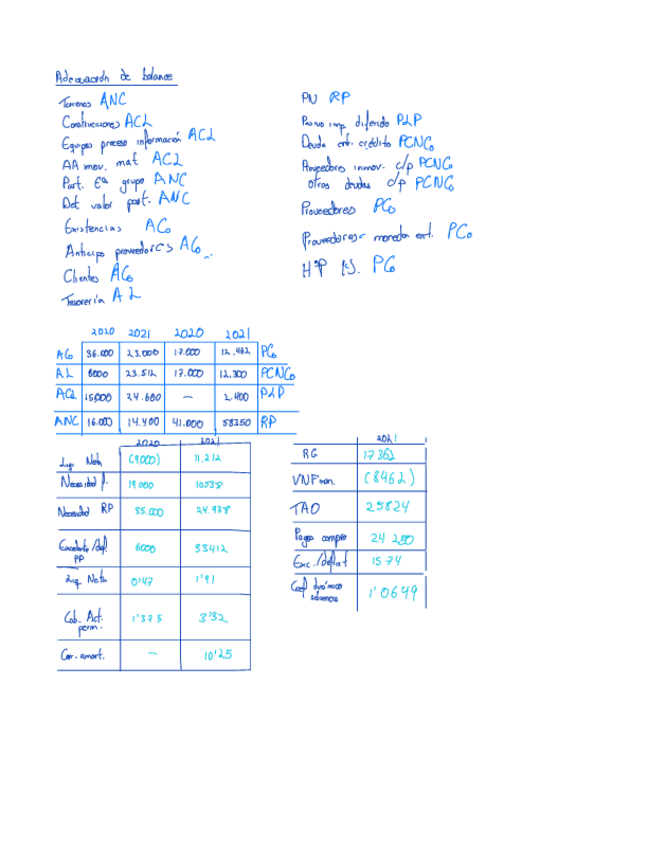 Adecuación de balance
Terrenos ANC
Construcciones ACL
Equipos proceso información ACL
AA inmov. mat ACL
Part. Eª grupo ANC
Det valor part. ANC
Existencias AC
Anticipo proveedores AC
Clientes AC
Tesorería AL
PN RP
Pasivo imp. diferido PLP
Deuda ent. crédito PCNC
Proveedores inmov. c/p PCNC
otras deudas c/p PCNC
Proveedores PC
Proveedores moneda ext. PC
HªP IS. PC
2020 2021 2020 2021
AC 36.000 23.000 17.000 12.462 PC
AL 8000 23.512 17.000 12.300 PCNC
ACL 15000 24.600 — 2.400 PLP
ANC 16.000 14.400 41.000 58350 RP
2020 2021
Liq. Neta (9.000) 11.212
Necesidad f. 19.000 10538
Necesidad RP 35.000 24.938
Excedente/def. PP 6000 33412
Liq. Neta 0'47 1'91
Cob. Act. perm. 1'375 3'32
Cor. amort. — 10'25
2021
RG 17362
VNF man. (8462)
TAO 25824
Pagos compro 24 250
Exc./deficit 1574
Coef dinámico solvencia 1'0649